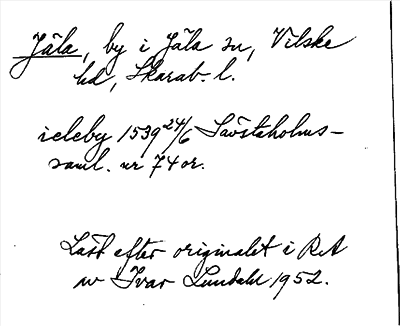 Jäla, by i Jäla sn, Vilske
hd, Skarab. l.
ieleby 1539 24/6 Säfstaholms-
saml. nr 74 or.
Läst efter originalet i RA
av Ivar Lundahl 1952.